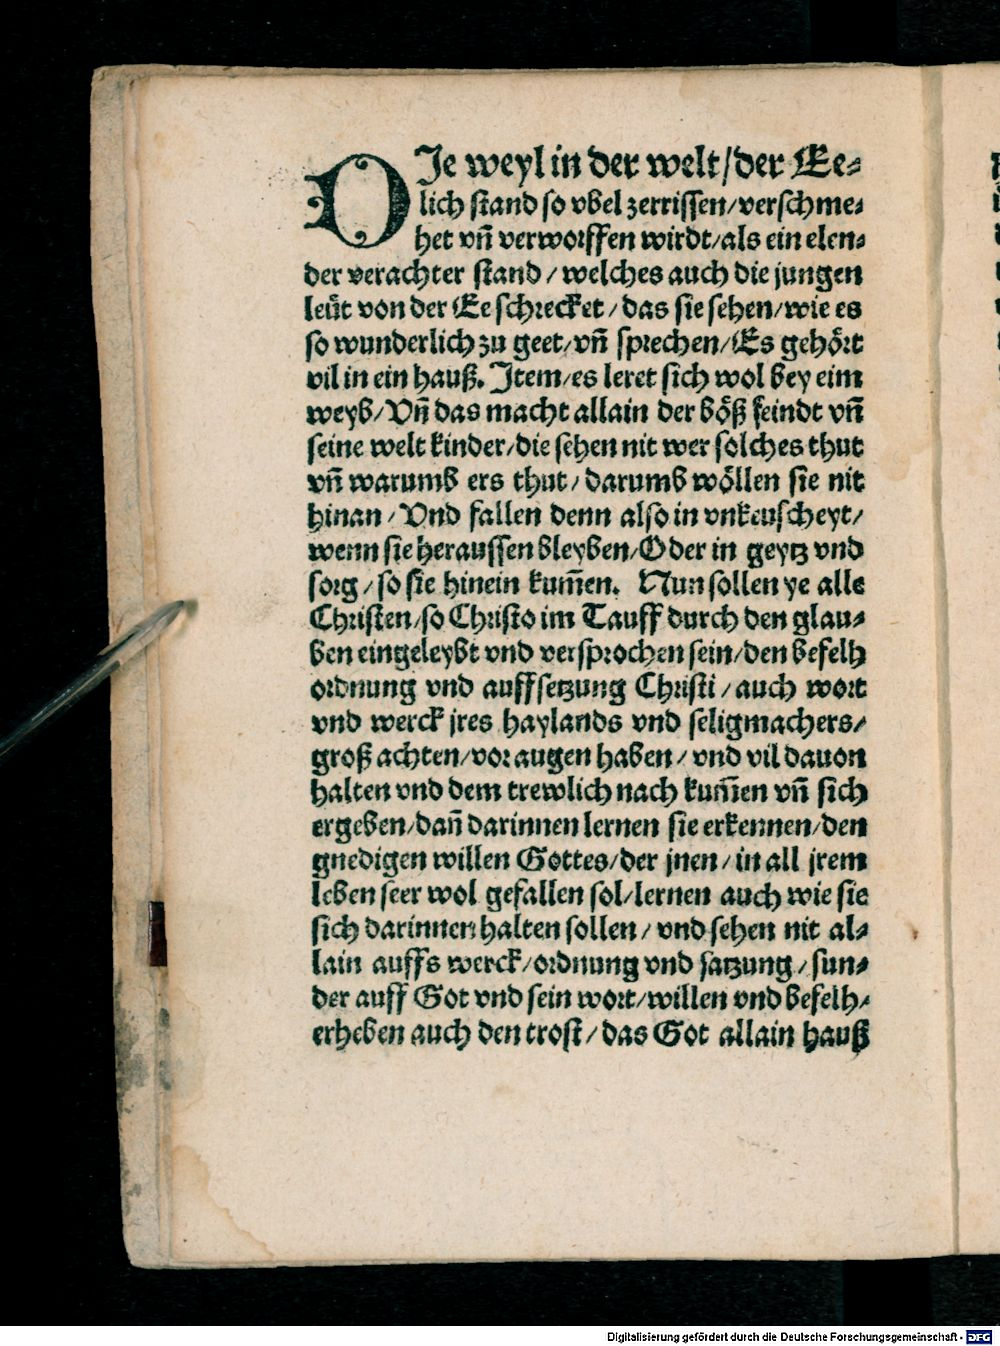 DJe weyl in der welt/der Ee-
lich stand so vbel zerrissen/verschme-
het vn̄ verworffen wirdt/als ein elen-
der verachter stand/welches auch die jungen
leüt von der Ee schrecket/das sie sehen/wie es
so wunderlich zu geet/vn̄ sprechen/Es gehört
vil in ein hauß. Jtem/es leret sich wol bey eim
weyb/Vn̄ das macht allain der böß feindt vn̄
seine welt kinder/die sehen nit wer solches thut
vn̄ warumb ers thut/darumb wöllen sie nit
hinan/Vnd fallen denn also in vnkeuscheyt/
wenn sie heraussen bleyben/Oder in geytz vnd
sorg/so sie hinein kum̄en. Nun sollen ye alle
Christen/so Christo im Tauff durch den glau-
ben eingeleybt vnd versprochen sein/den befelh
ordnung vnd auffsetzung Christi/auch wort
vnd werck jres haylands vnd seligmachers/
groß achten/vor augen haben/vnd vil dauon
halten vnd dem trewlich nach kum̄en vn̄ sich
ergeben/dan̄ darinnen lernen sie erkennen/den
gnedigen willen Gottes/der jnen/in all jrem
leben seer wol gefallen sol/lernen auch wie sie
sich darinnen halten sollen/vnd sehen nit al-
lain auffs werck/ordnung vnd satzung/sun-
der auff Got vnd sein wort/willen vnd befelh/
erheben auch den trost/das Got allain hauß
Digitalisierung gefördert durch die Deutsche Forschungsgemeinschaft - DFG